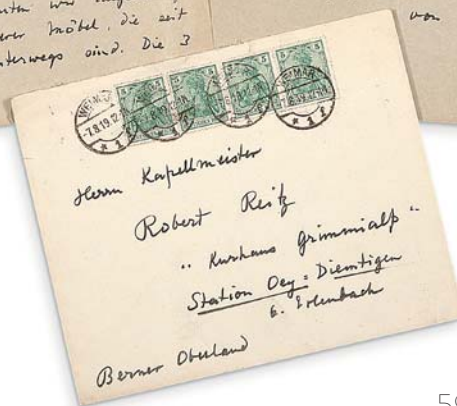 erer Möbel, die seit
unterwegs sind. Die 3
von
5 5 5 5
WEIMAR
-7.8.19.12-
WEIMAR
Herrn Kapellmeister
Robert Reitz
„Kurhaus Grimmialp“
Station Oey=Diemtigen
b. Erlenbach
Berner Oberland